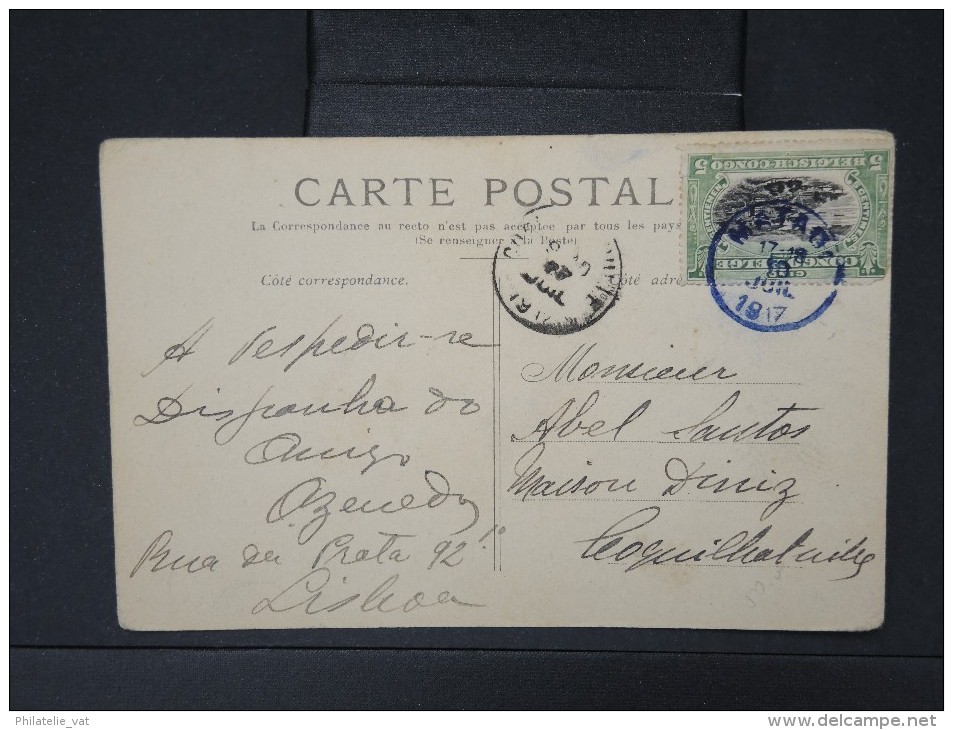 CARTE POSTAL
La Correspondance au recto n'est pas acceptée par tous les pays
(Se renseigner à la Poste)
Côté correspondance.
Côté adre
5 BELGISCH-CONGO 5
CENTIMES
CONGO BELGE
MATADI
17-18
10
JUIL
1917
A despedir-se
Disponha do
Amigo
Azevedo
Rua da Prata 92 1º
Lisboa
Monsieur
Abel Santos
Maison Diniz
Coquilhatville
Philatelie_vat
www.delcampe.net